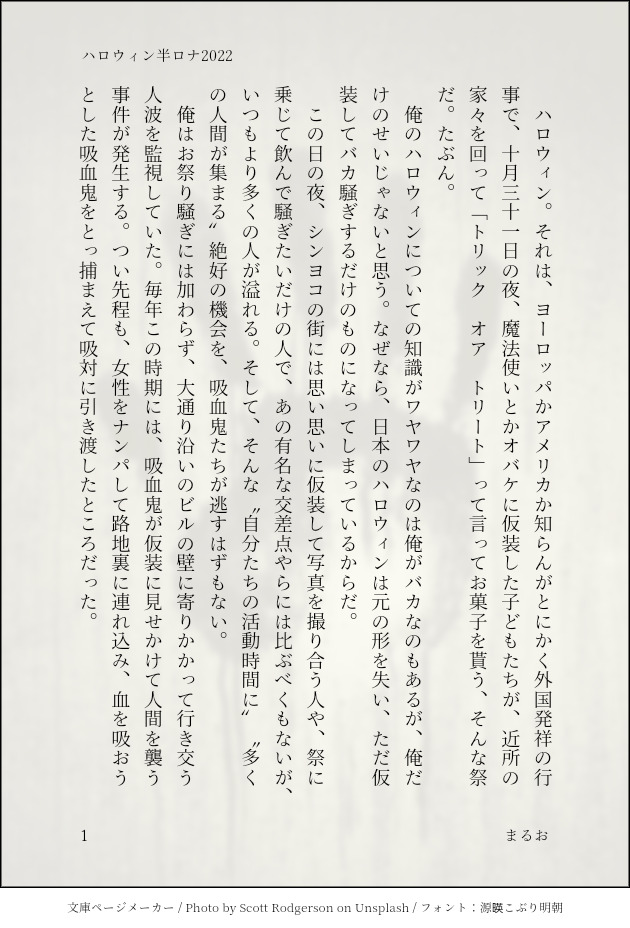 ハロウィン半ロナ2022
　ハロウィン。それは、ヨーロッパかアメリカか知らんがとにかく外国発祥の行
事で、十月三十一日の夜、魔法使いとかオバケに仮装した子どもたちが、近所の
家々を回って「トリック　オア　トリート」って言ってお菓子を貰う、そんな祭
だ。たぶん。
　俺のハロウィンについての知識がワヤワヤなのは俺がバカなのもあるが、俺だ
けのせいじゃないと思う。なぜなら、日本のハロウィンは元の形を失い、ただ仮
装してバカ騒ぎするだけのものになってしまっているからだ。
　この日の夜、シンヨコの街には思い思いに仮装して写真を撮り合う人や、祭に
乗じて飲んで騒ぎたいだけの人で、あの有名な交差点やらには比ぶべくもないが、
いつもより多くの人が溢れる。そして、そんな〝自分たちの活動時間に〟〝多く
の人間が集まる〟絶好の機会を、吸血鬼たちが逃すはずもない。
　俺はお祭り騒ぎには加わらず、大通り沿いのビルの壁に寄りかかって行き交う
人波を監視していた。毎年この時期には、吸血鬼が仮装に見せかけて人間を襲う
事件が発生する。つい先程も、女性をナンパして路地裏に連れ込み、血を吸おう
とした吸血鬼をとっ捕まえて吸対に引き渡したところだった。
まるお
1
文庫ページメーカー / Photo by Scott Rodgerson on Unsplash / フォント：源暎こぶり明朝